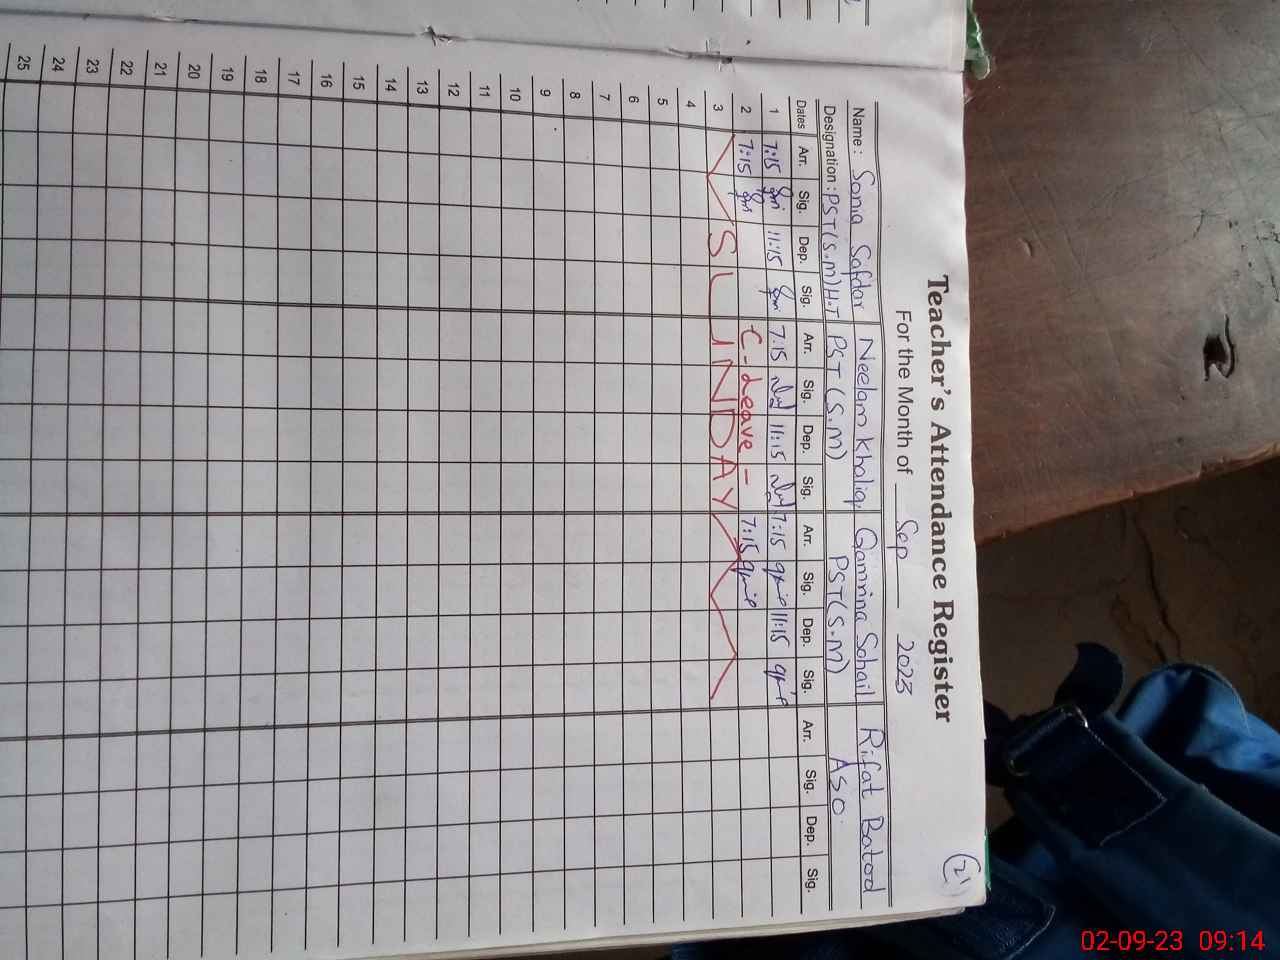 (21)
Teacher's Attendance Register
For the Month of Sep 2023
Name: Sonia Safdar Neelam Khaliq Qamrina Sohail Rifat Batool
Designation: PST(S.M)H.T PST (S.M) PST(S.M) ASO.
Dates Arr. Sig. Dep. Sig. Arr. Sig. Dep. Sig. Arr. Sig. Dep. Sig. Arr. Sig. Dep. Sig.
1 7:15 11:15 7:15 11:15 7:15 11:15
2 7:15 C-Leave- 7:15
3 SUNDAY
4
5
6
7
8
9
10
11
12
13
14
15
16
17
18
19
20
21
22
23
24
25
02-09-23 09:14